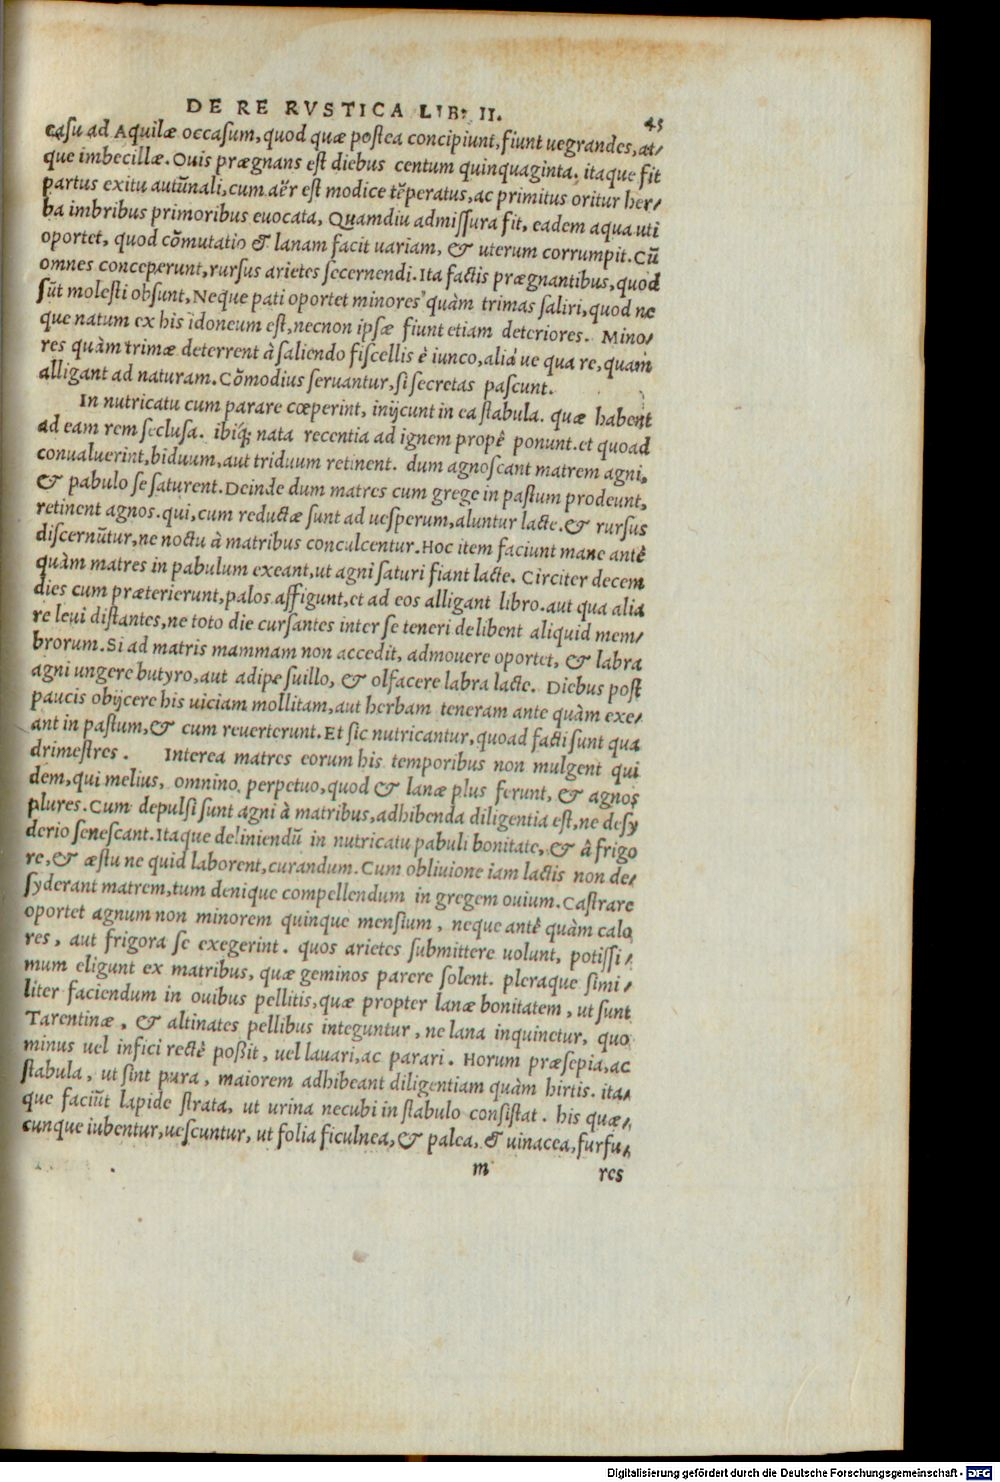 DE RE RVSTICA LIB: II.
45
casu ad Aquilæ occasum, quod quæ postea concipiunt, fiunt uegrandes, at/
que imbecillæ. Ouis prægnans est diebus centum quinquaginta, itaque fit
partus exitu autũnali, cum aër est modice tẽperatus, ac primitus oritur her/
ba imbribus primoribus euocata, Quamdiu admissura fit, eadem aqua uti
oportet, quod cõmutatio & lanam facit uariam, & uterum corrumpit. Cũ
omnes conceperunt, rursus arietes secernendi. Ita factis prægnantibus, quod
sũt molesti obsunt, Neque pati oportet minores quàm trimas saliri, quod ne
que natum ex his idoneum est, necnon ipsæ fiunt etiam deteriores. Mino/
res quàm trimæ deterrent à saliendo fiscellis è iunco, alia ue qua re, quam
alligant ad naturam. Cõmodius seruantur, si secretas pascunt.
In nutricatu cum parare cœperint, inijcunt in ea stabula. quæ habent
ad eam rem seclusa. ibiq; nata recentia ad ignem propè ponunt. et quoad
conualuerint, biduum, aut triduum retinent. dum agnoscant matrem agni,
& pabulo se saturent. Deinde dum matres cum grege in pastum prodeunt,
retinent agnos. qui, cum reductæ sunt ad uesperum, aluntur lacte. & rursus
discernũtur, ne noctu à matribus conculcentur. Hoc item faciunt mane antè
quàm matres in pabulum exeant, ut agni saturi fiant lacte. Circiter decem
dies cum præterierunt, palos affigunt, et ad eos alligant libro. aut qua alia
re leui distantes, ne toto die cursantes inter se teneri delibent aliquid mem/
brorum. Si ad matris mammam non accedit, admouere oportet, & labra
agni ungere butyro, aut adipe suillo, & olfacere labra lacte. Diebus post
paucis obijcere his uiciam mollitam, aut herbam teneram ante quàm exe/
ant in pastum, & cum reuerterunt. Et sic nutricantur, quoad facti sunt qua
drimestres. Interea matres eorum his temporibus non mulgent qui
dem, qui melius, omnino perpetuo, quod & lanæ plus ferunt, & agnos
plures. Cum depulsi sunt agni à matribus, adhibenda diligentia est, ne desy
derio senescant. Itaque deliniendũ in nutricatu pabuli bonitate, & à frigo
re, & æstu ne quid laborent, curandum. Cum obliuione iam lactis non de/
syderant matrem, tum denique compellendum in gregem ouium. Castrare
oportet agnum non minorem quinque mensium, neque antè quàm calo
res, aut frigora se exegerint. quos arietes submittere uolunt, potissi/
mum eligunt ex matribus, quæ geminos parere solent. pleraque simi/
liter faciendum in ouibus pellitis, quæ propter lanæ bonitatem, ut sunt
Tarentinæ, & altinates pellibus integuntur, ne lana inquinetur, quo
minus uel infici rectè poßit, uel lauari, ac parari. Horum præsepia, ac
stabula, ut sint pura, maiorem adhibeant diligentiam quàm hirtis. ita/
que faciũt lapide strata, ut urina necubi in stabulo consistat. his quæ/
cunque iubentur, uescuntur, ut folia ficulnea, & palea, & uinacea, furfu/
m
res
Digitalisierung gefördert durch die Deutsche Forschungsgemeinschaft - DFG